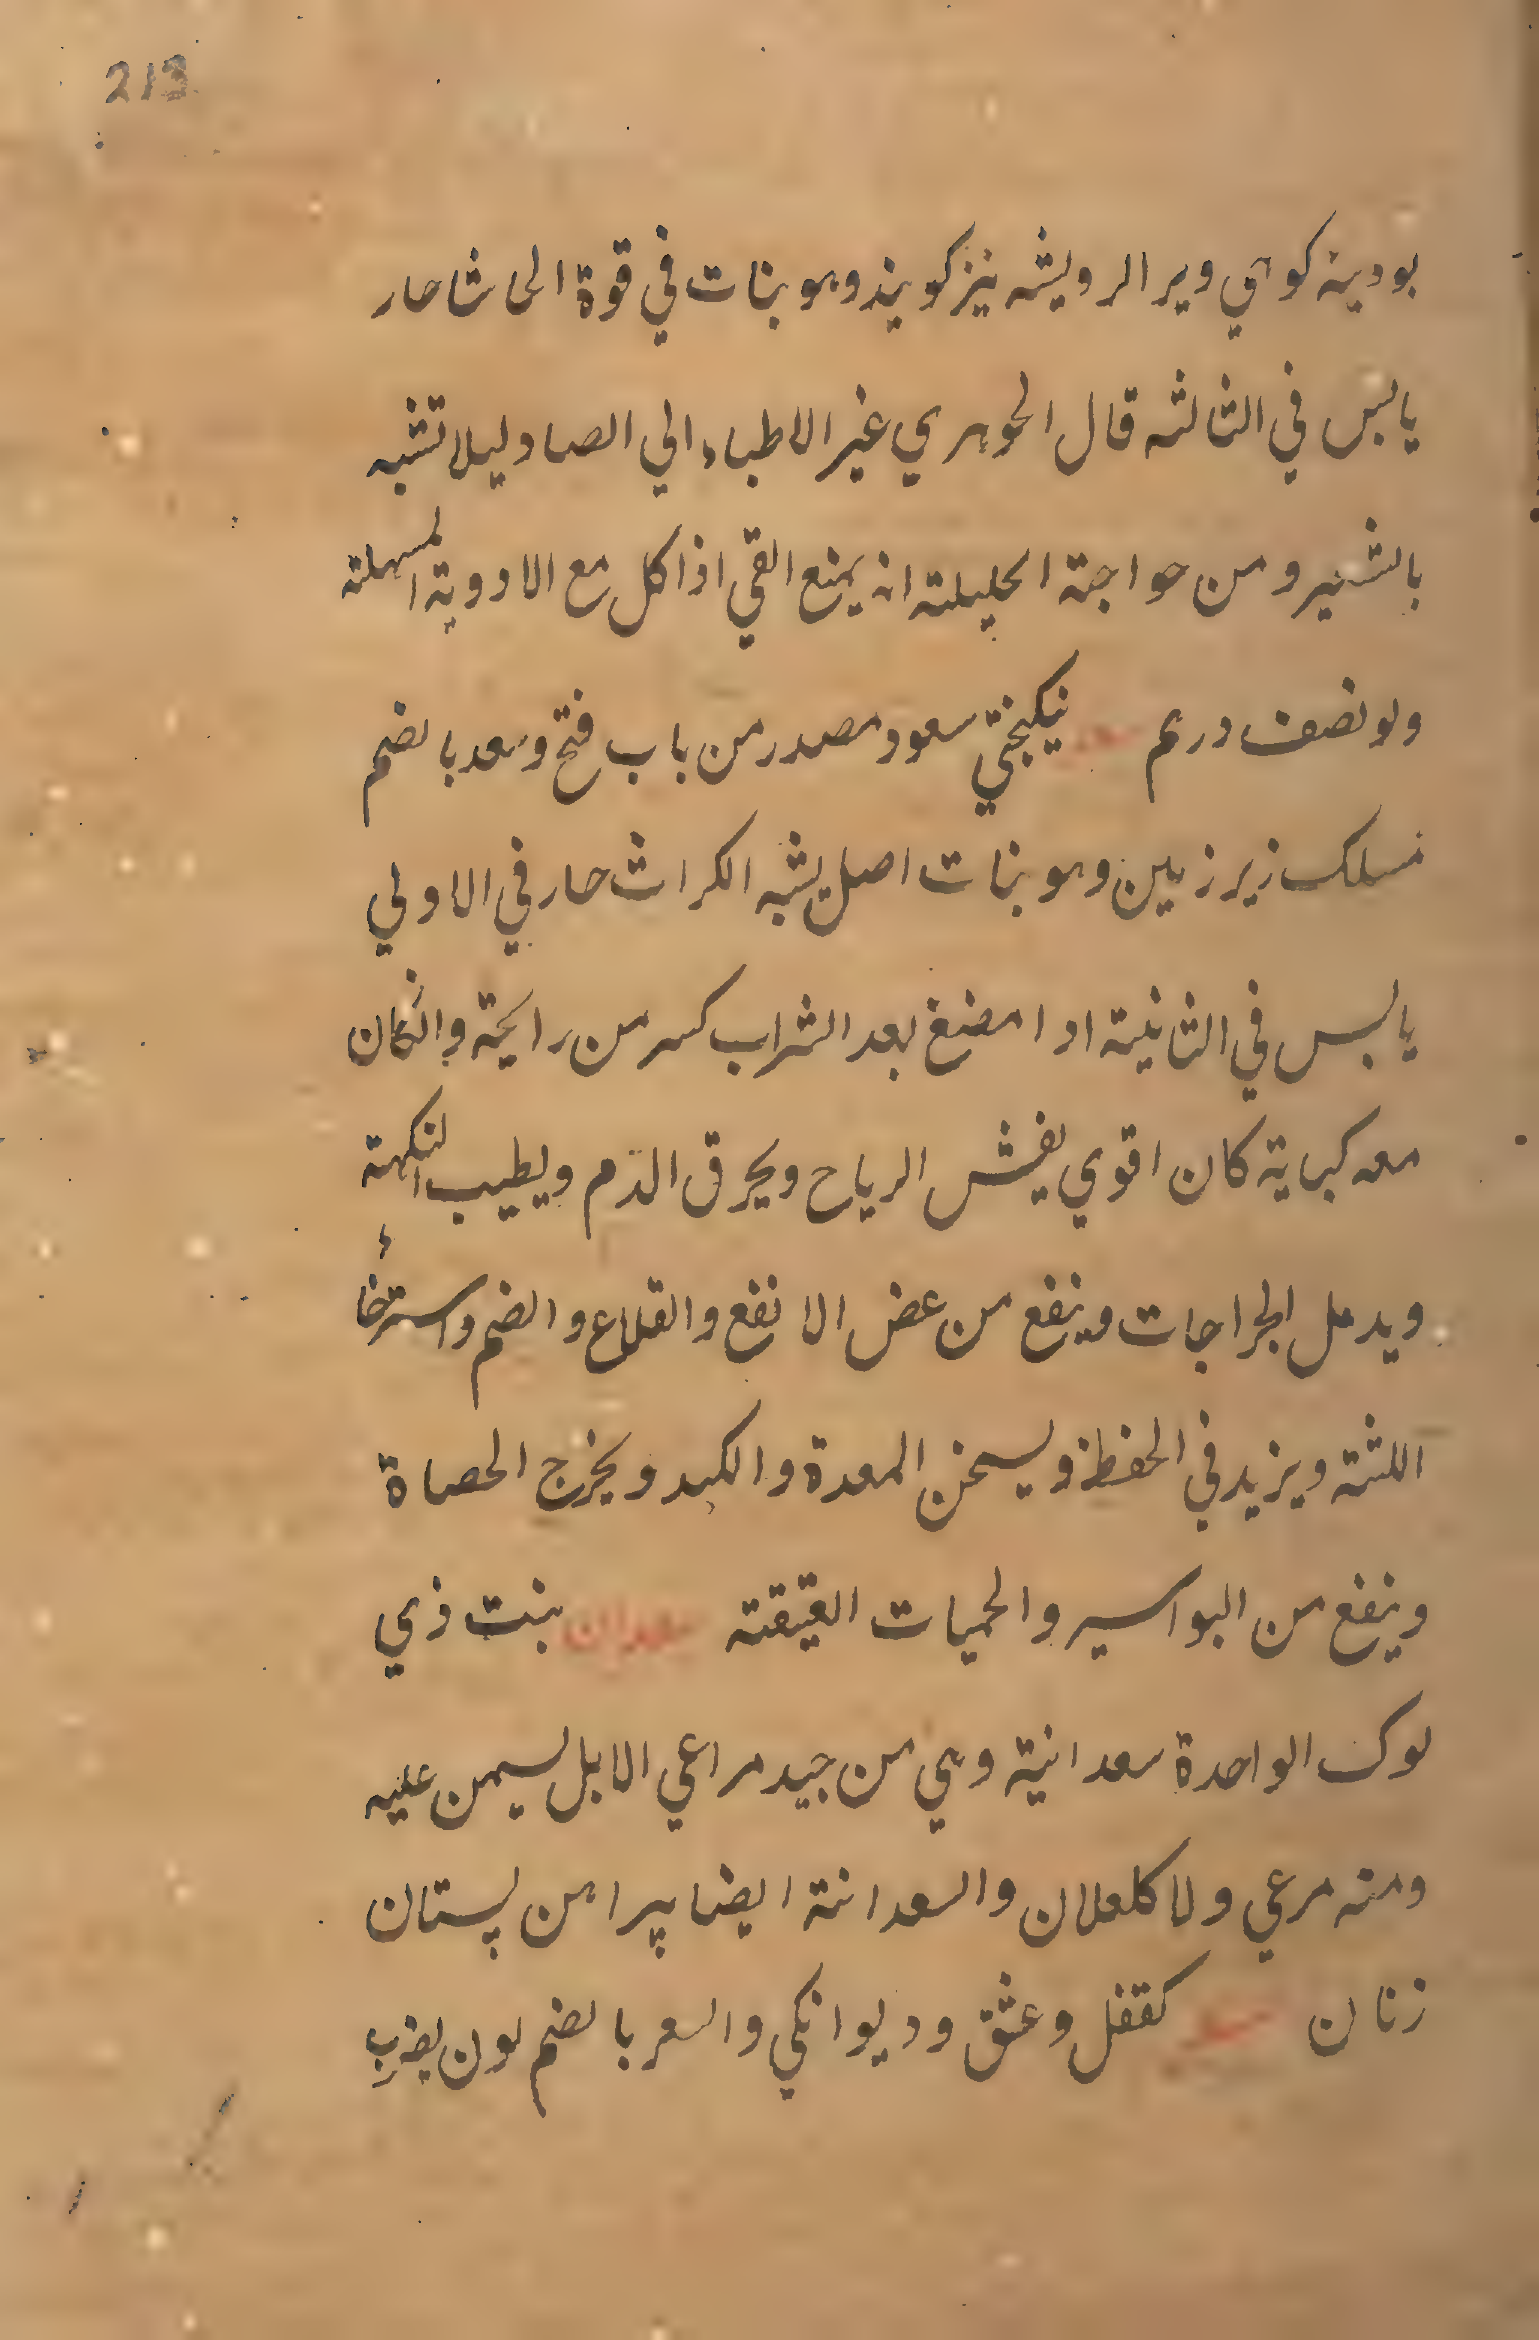 213
بودينه كوهي وير الرويشه نيز كويند وهو بنات في قوة الى شا حار
يابس في الثالثه قال الجوهري غير الاطباء الي الصاد ليلا تشبه
بالشعير ومن حواجة الجليلته انه يمنع القي اذا كل مع الادوية المسهلته
ولو نصف درهم سعد نيكبختي سعود مصدر من باب فتح وسعد بالضم
مسلك زير زمين وهو بنات اصل يشبه الكراث حار في الاولي
يابس في الثانية اذا مضغ بعد الشراب كسر من رايحة وانكان
معه كباية كان اقوي يفش الرياح ويحرق الدم ويطيب النكهته
ويدمل الجراحات وينفع من عض الا نفع والقلاع و الضم واسترخاء
اللثته ويزيد في الحفظ ويسخن المعدة والكبد ويخرج الحصاة
وينفع من البواسير والحميات العتيقته سعدان بنت ذي
لوك الواحدة سعدانية وهي من جيد مراعي الابل ليسمن عليه
ومنه مرعي ولا كلعلان والسعدانته ايضا پيرا من پستان
زنان سعر كقفل وعشق وديوانكي والسعر بالضم لون يضرب